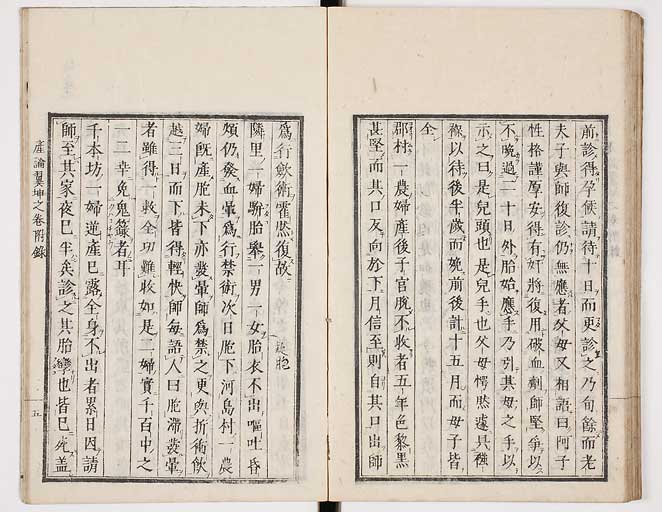 前診得孕候請待十日而更診之乃旬餘而老
夫子與師復診仍無應者父母又相語曰阿子
性格謹厚安得有奸將復用破血劑師堅爭以
不晩過二十日外胎始應手乃引其母之手以
示之曰是兒頭也是兒手也父母愕然遽具襁
褓以待後半歲而娩前後計十五月而母子皆
全
郡村一農婦產後子宮脫不收者五年色黎黒
甚堅而其口反向於下月信至則自其口出師
爲行斂術霍然復故
隣里一婦骿胎舉一男一女胎衣不出嘔吐昏
煩仍發血暈爲行禁術次日胞下河島村一農
婦既產胞未下亦發暈師爲禁之更與折術飲
越三日而下皆得輕快師每語人曰胞滯發暈
者雖得一救全功難收如是二婦實千百中之
一二幸免鬼籙者耳
千本坊一婦逆產已露全身不出者累日因請
師至其家夜已半矣診之其胎也皆已死盖
產論翼坤之卷附錄
五